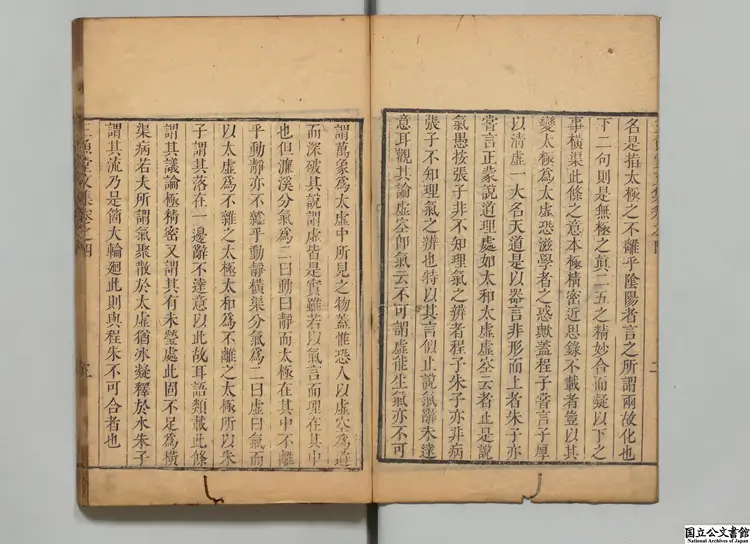 名是指太極之不離乎陰陽者言之所謂兩故化也
下二句則是無極之真二五之精妙合而凝以下之
事橫渠此條之意本極精密近思錄不載者豈以其
變太極為太虛恐滋學者之惑歟蓋程子嘗言子厚
以清虛一大名天道是以器言非形而上者朱子亦
嘗言正蒙說道理處如太和太虛虛空云者止是說
氣愚按張子非不知理氣之辨者程子朱子亦非病
張子不知理氣之辨也特以其言似止說氣辭未達
意耳觀其論虛空即氣云不可謂虛能生氣亦不可
謂萬象為太虛中所見之物蓋惟恐人以虛空為道
而深破其說謂虛皆是實雖若以氣言而理在其中
也但濂溪分氣為二曰動曰靜而太極在其中不離
乎動靜亦不雜乎動靜橫渠分氣為二曰虛曰氣而
以太虛為不雜之太極太和為不離之太極所以朱
子謂其落在一邊辭不達意以此故耳語類載此條
謂其議論極精密又謂其有未瑩處此固不足為橫
渠病若夫所謂氣聚散於太虛猶冰凝釋於水朱子
謂其流乃是箇大輪廻此則與程朱不可合者也
三魚堂文集卷之四
国立公文書館
National Archives of Japan